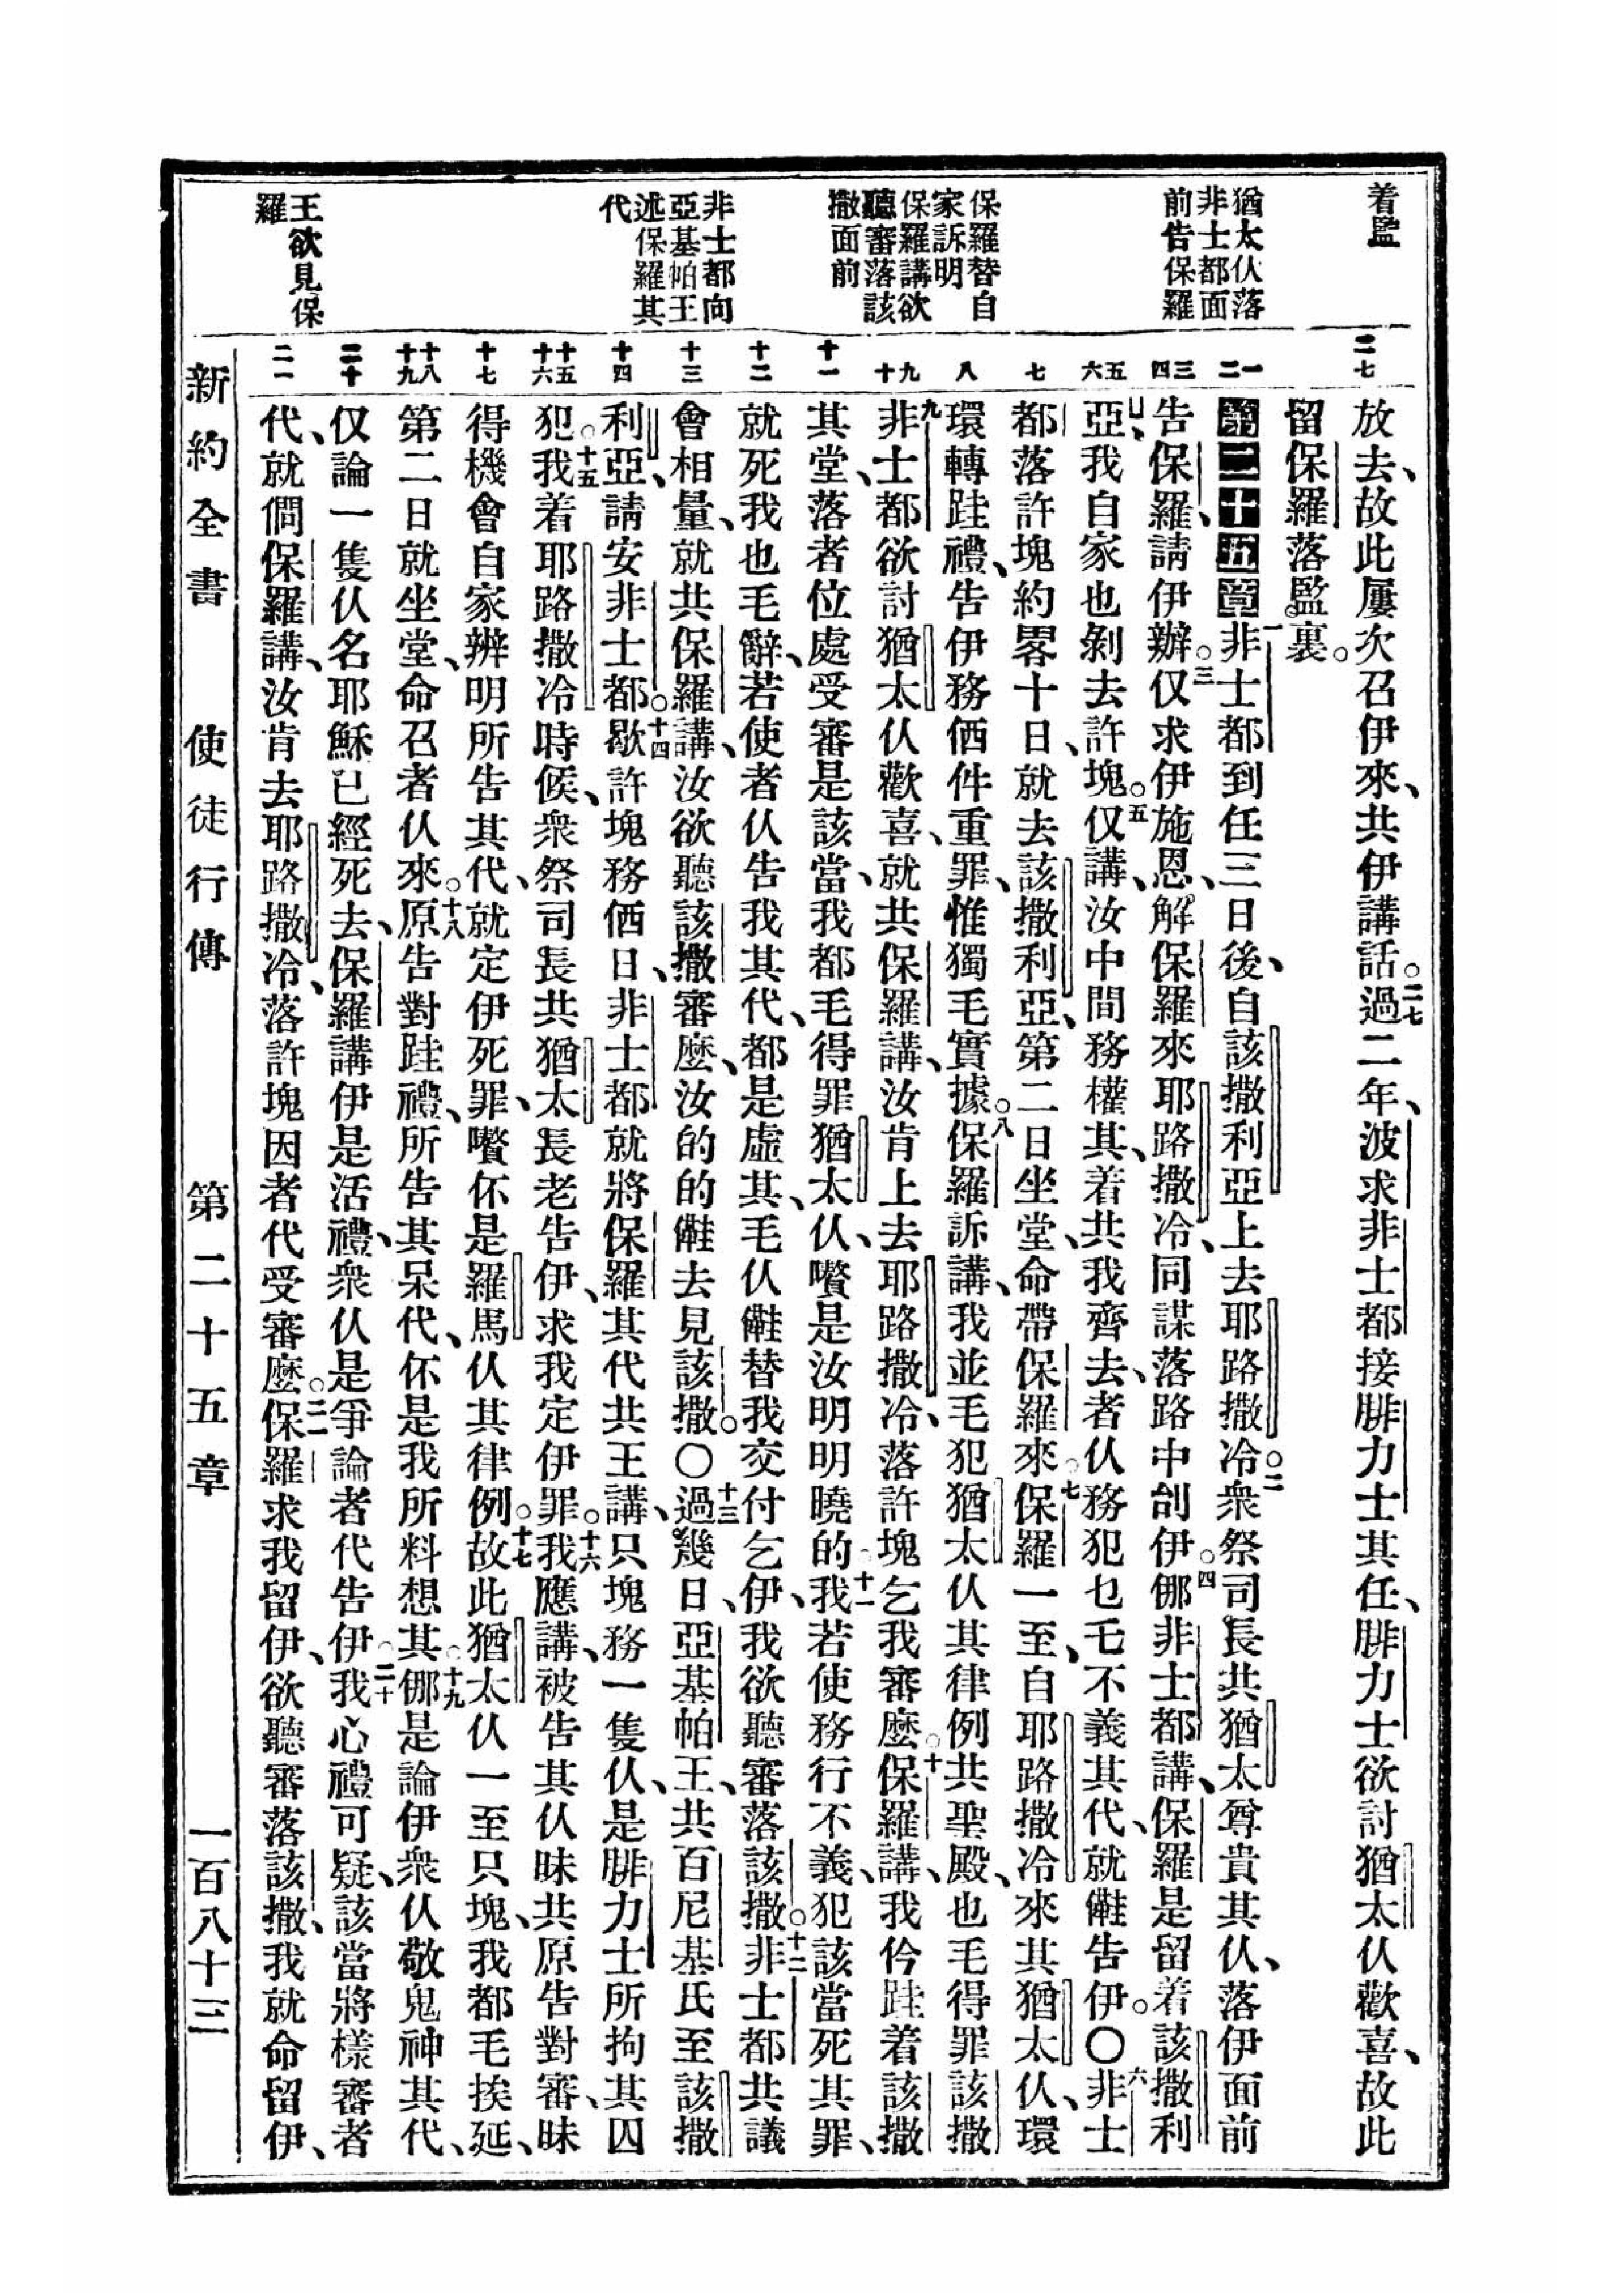 着監
猶太仸落
非士都面
前告保羅
保羅替自
家訴明
保羅講欲
聽審落該
撒面前
非士都向
亞基帕王
述保羅其
代
王欲見保
羅
二七
一 二
三 四
五 六
七
八
九 十
十一
十二
十三
十四
十五 十六
十七
十八 十九
二十
二一
放去、故此屢次召伊來、共伊講話。二七過二年、波求非士都接腓力士其任、腓力士欲討猶太仸歡喜、故此
留保羅落監裏。
第二十五章 一非士都到任三日後、自該撒利亞上去耶路撒冷。二衆祭司長共猶太尊貴其仸、落伊面前
告保羅、請伊辦。三仅求伊施恩、解保羅來耶路撒冷、同謀落路中刣伊。四倻非士都講、保羅是留着該撒利
亞、我自家也剝去許塊。五仅講、汝中間務權其、着共我齊去、者仸務犯乜乇不義其代、就㒰告伊。〇六非士
都落許塊約畧十日、就去該撒利亞、第二日坐堂、命帶保羅來。七保羅一至、自耶路撒冷來其猶太仸、環
環轉跬禮、告伊務価件重罪、惟獨毛實據。八保羅訴講、我並毛犯猶太仸其律例共聖殿、也毛得罪該撒
九非士都欲討猶太仸歡喜、就共保羅講、汝肯上去耶路撒冷、落許塊乞我審麽。十保羅講、我仱跬着該撒
其堂、落者位處受審是該當、我都毛得罪猶太仸、囋是汝明明曉的。十一我若使務行不義、犯該當死其罪、
就死我也毛辭、若使者仸告我其代、都是虛其、毛仸㒰替我交付乞伊、我欲聽審落該撒。十二非士都共議
會相量、就共保羅講、汝欲聽該撒審麽、汝的的㒰去見該撒。〇十三過幾日、亞基帕王、共百尼基氏至該撒
利亞、請安非士都。十四歇許塊務価日、非士都就將保羅其代共王講、只塊務一隻仸、是腓力士所拘其囚
犯。十五我着耶路撒冷時候、衆祭司長共猶太長老告伊、求我定伊罪。十六我應講、被告其仸昧共原告對審、昧
得機會自家辨明所告其代、就定伊死罪、囋伓是羅馬仸其律例。十七故此猶太仸一至只塊、我都毛挨延、
第二日就坐堂、命召者仸來。十八原告對跬禮、所告其呆代、伓是我所料想其。十九倻是論伊衆仸敬鬼神其代、
仅論一隻仸名耶穌已經死去、保羅講伊是活禮、衆仸是爭論者代告伊。二十我心禮可疑、該當將樣審者
代、就僴保羅講、汝肯去耶路撒冷、落許塊因者代受審麽。二一保羅求我留伊、欲聽審落該撒、我就命留伊、
新約全書 使徒行傳 第二十五章 一百八十三